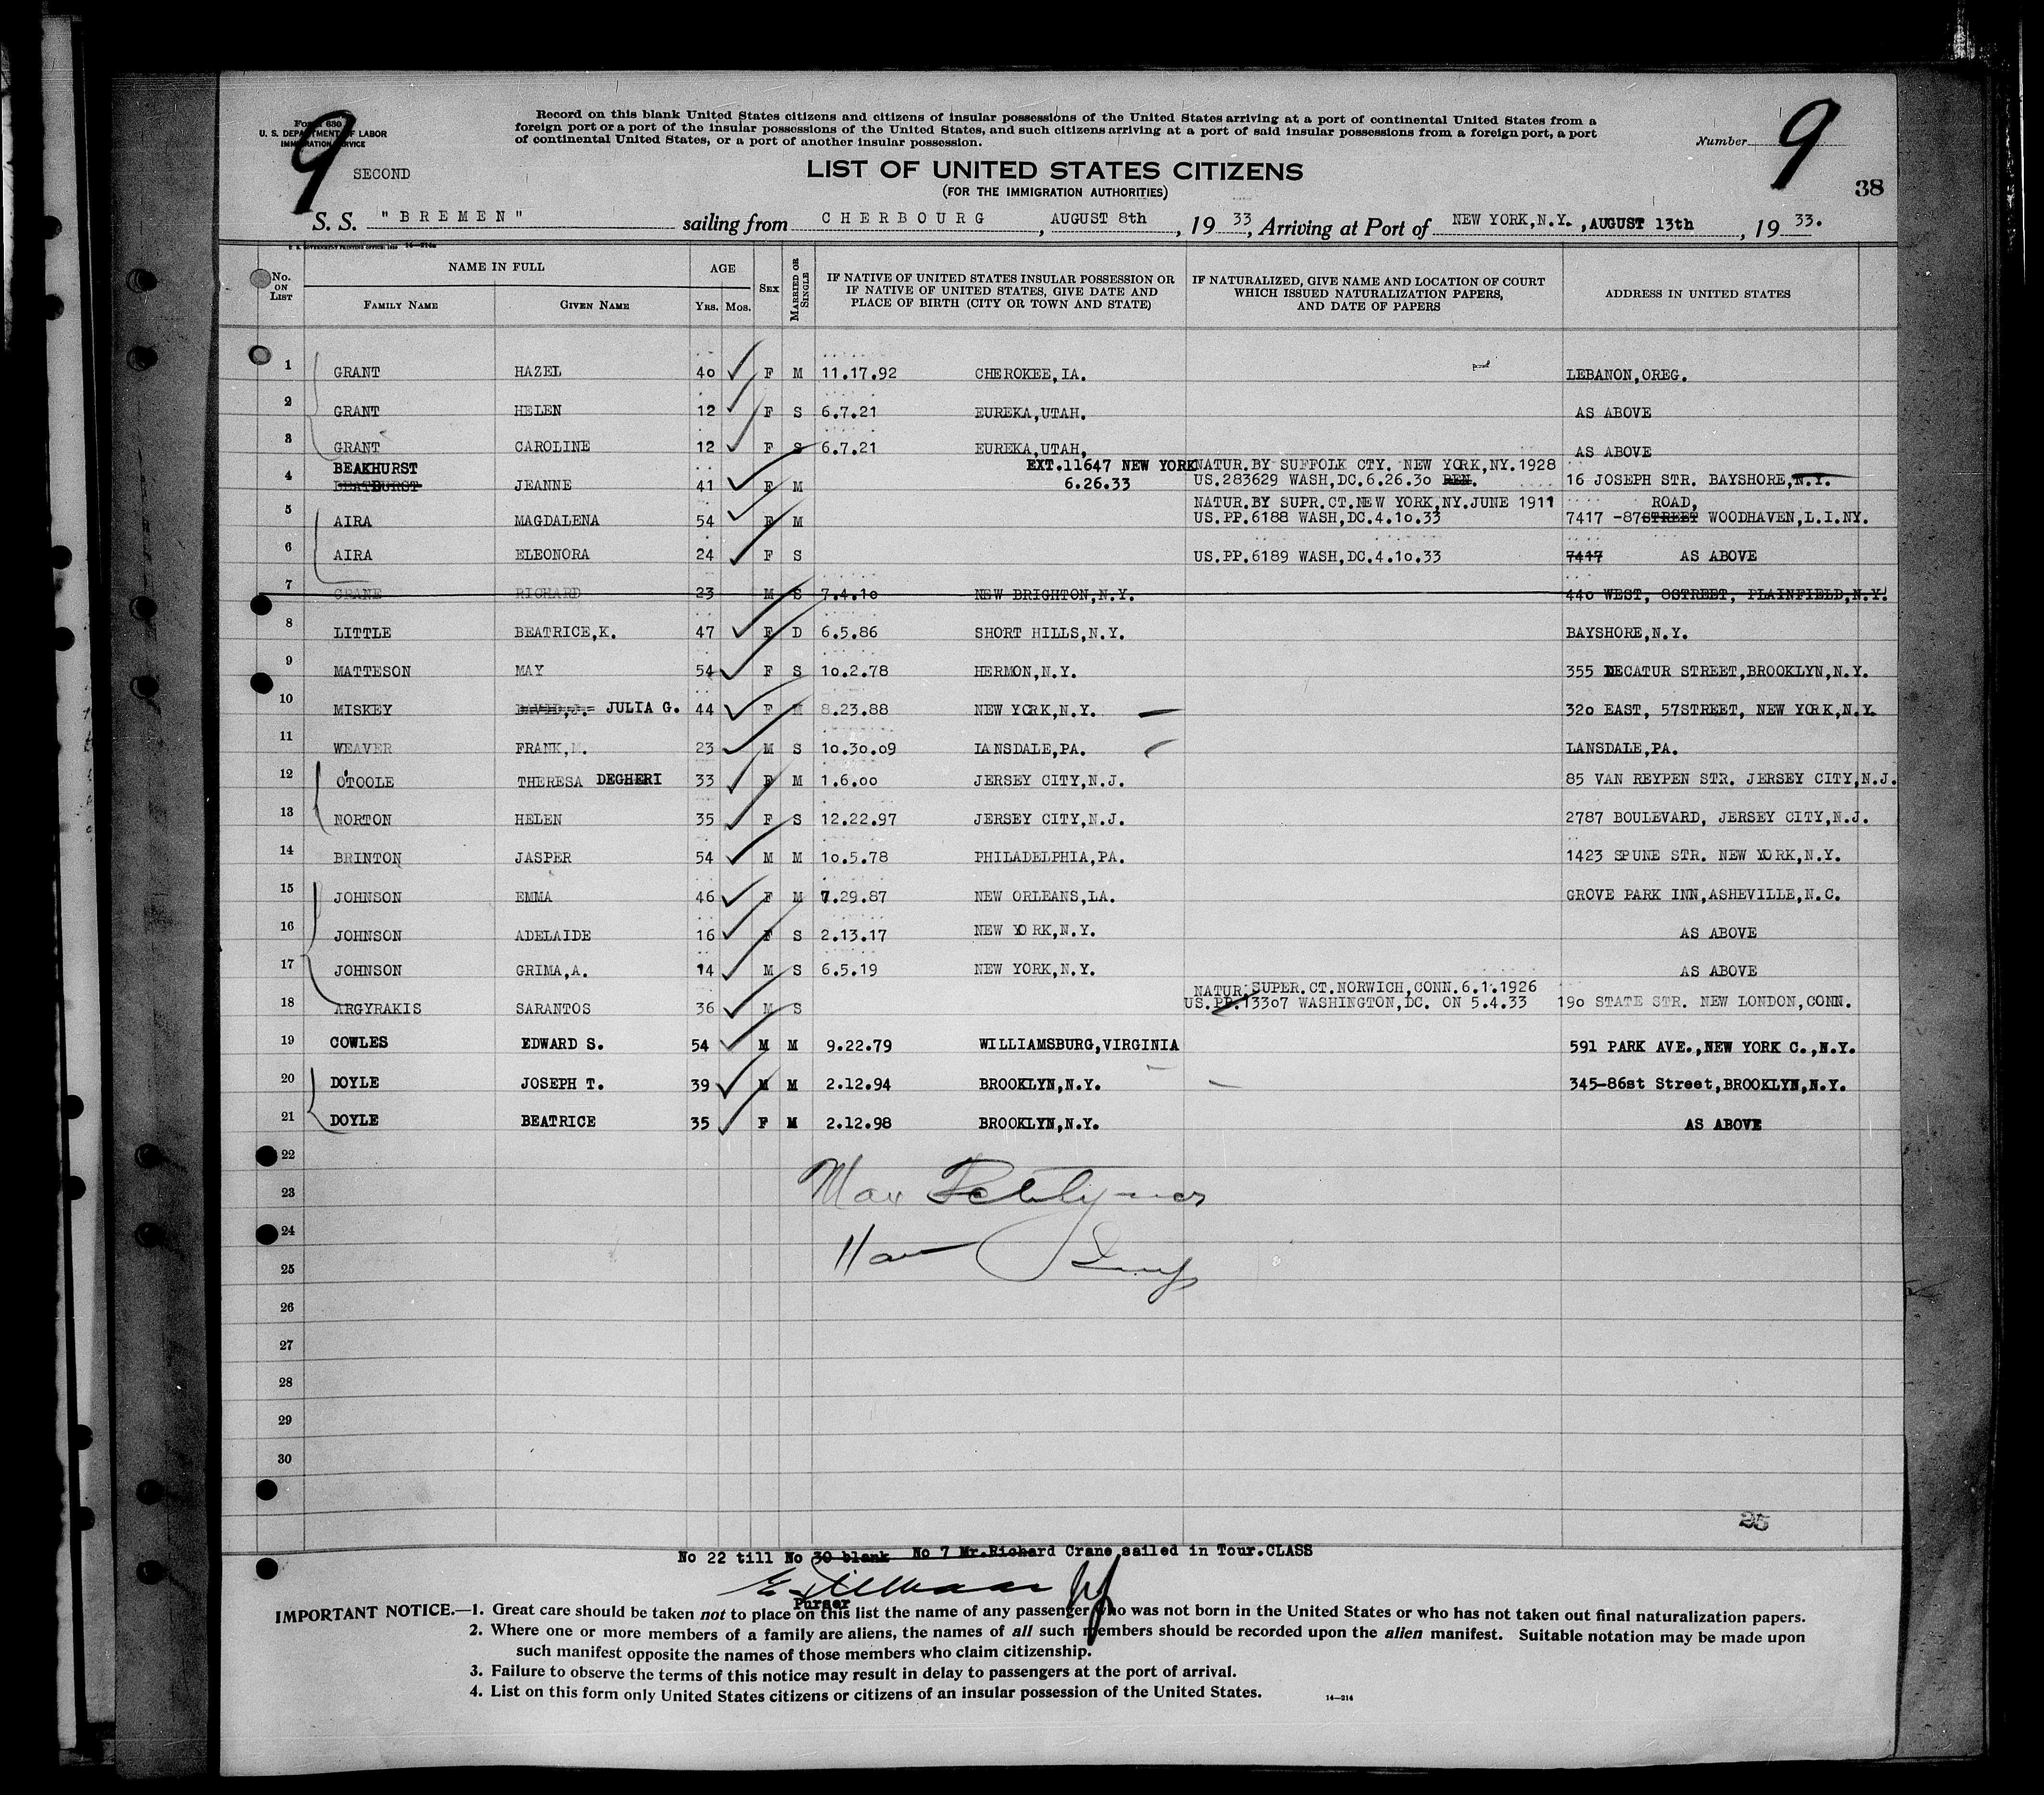 Form 630
U. S. DEPARTMENT OF LABOR
IMMIGRATION SERVICE
9
SECOND
Record on this blank United States citizens and citizens of insular possessions of the United States arriving at a port of continental United States from a
foreign port or a port of the insular possessions of the United States, and such citizens arriving at a port of said insular possessions from a foreign port, a port
of continental United States, or a port of another insular possession.
Number 9
38
LIST OF UNITED STATES CITIZENS
(FOR THE IMMIGRATION AUTHORITIES)
S. S. "BREMEN" sailing from CHERBOURG, AUGUST 8th, 1933, Arriving at Port of NEW YORK,N.Y., AUGUST 13th, 1933.
No. ON LIST
NAME IN FULL
FAMILY NAME GIVEN NAME
AGE
YRS. MOS.
SEX
MARRIED OR SINGLE
IF NATIVE OF UNITED STATES INSULAR POSSESSION OR
IF NATIVE OF UNITED STATES, GIVE DATE AND
PLACE OF BIRTH (CITY OR TOWN AND STATE)
IF NATURALIZED, GIVE NAME AND LOCATION OF COURT
WHICH ISSUED NATURALIZATION PAPERS,
AND DATE OF PAPERS
ADDRESS IN UNITED STATES
1 GRANT HAZEL 40 F M 11.17.92 CHEROKEE,IA. LEBANON,OREG.
2 GRANT HELEN 12 F S 6.7.21 EUREKA,UTAH. AS ABOVE
3 GRANT CAROLINE 12 F S 6.7.21 EUREKA,UTAH, AS ABOVE
BEAKHURST EXT.11647 NEW YORK NATUR.BY SUFFOLK CTY. NEW YORK,NY.1928
4 JEANNE 41 F M 6.26.33 US.283629 WASH,DC.6.26.30 REN. 16 JOSEPH STR. BAYSHORE,N.Y.
NATUR.BY SUPR.CT.NEW YORK,NY.JUNE 1911 ROAD,
5 AIRA MAGDALENA 54 F M US.PP.6188 WASH,DC.4.10.33 7417 -87STREET WOODHAVEN,L.I.NY.
6 AIRA ELEONORA 24 F S US.PP.6189 WASH,DC.4.10.33 7417 AS ABOVE
7 CRANE RICHARD 23 M S 7.4.10 NEW BRIGHTON,N.Y. 440 WEST, 8STREET, PLAINFIELD,N.Y.
8 LITTLE BEATRICE,K. 47 F D 6.5.86 SHORT HILLS,N.Y. BAYSHORE,N.Y.
9 MATTESON MAY 54 F S 10.2.78 HERMON,N.Y. 355 DECATUR STREET,BROOKLYN,N.Y.
10 MISKEY DAVID,J. JULIA G. 44 F M 8.23.88 NEW YORK,N.Y. 320 EAST, 57STREET, NEW YORK,N.Y.
11 WEAVER FRANK,M. 23 M S 10.30.09 LANSDALE,PA. LANSDALE,PA.
12 O'TOOLE THERESA DEGHERI 33 F M 1.6.00 JERSEY CITY,N.J. 85 VAN REYPEN STR. JERSEY CITY,N.J.
13 NORTON HELEN 35 F S 12.22.97 JERSEY CITY,N.J. 2787 BOULEVARD, JERSEY CITY,N.J.
14 BRINTON JASPER 54 M M 10.5.78 PHILADELPHIA,PA. 1423 SPUNE STR. NEW YORK,N.Y.
15 JOHNSON EMMA 46 F M 7.29.87 NEW ORLEANS,LA. GROVE PARK INN,ASHEVILLE,N.C.
16 JOHNSON ADELAIDE 16 F S 2.13.17 NEW YORK,N.Y. AS ABOVE
17 JOHNSON GRIMA,A. 14 M S 6.5.19 NEW YORK,N.Y. AS ABOVE
NATUR.SUPER.CT.NORWICH,CONN.6.1.1926
18 ARGYRAKIS SARANTOS 36 M S US.PP.13307 WASHINGTON,DC. ON 5.4.33 190 STATE STR. NEW LONDON,CONN.
19 COWLES EDWARD S. 54 M M 9.22.79 WILLIAMSBURG,VIRGINIA 591 PARK AVE.,NEW YORK C.,N.Y.
20 DOYLE JOSEPH T. 39 M M 2.12.94 BROOKLYN,N.Y. 345-86st Street,BROOKLYN,N.Y.
21 DOYLE BEATRICE 35 F M 2.12.98 BROOKLYN,N.Y. AS ABOVE
22
23
24
25
26
27
28
29
30
25
No 22 till No 30 blank No 7 Mr.Richard Crane sailed in Tour.CLASS
Purser
IMPORTANT NOTICE.—1. Great care should be taken not to place on this list the name of any passenger who was not born in the United States or who has not taken out final naturalization papers.
2. Where one or more members of a family are aliens, the names of all such members should be recorded upon the alien manifest. Suitable notation may be made upon
such manifest opposite the names of those members who claim citizenship.
3. Failure to observe the terms of this notice may result in delay to passengers at the port of arrival.
4. List on this form only United States citizens or citizens of an insular possession of the United States.
14—214